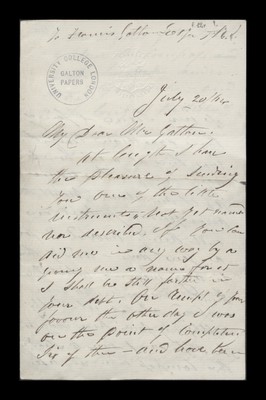 To Francis Galton Esqr F.R.S.
UNIVERSITY COLLEGE LONDON
GALTON
PAPERS
July 20/
My Dear Mr Galton.
At length I have
the pleasure of sending
you one of the little
instruments, not yet named
nor described. If you can
aid me in any way by
giving me a name for it
I shall be still further in
your debt. On receipt of your
favour the other day I was
on the point of completing
six of them — and have been